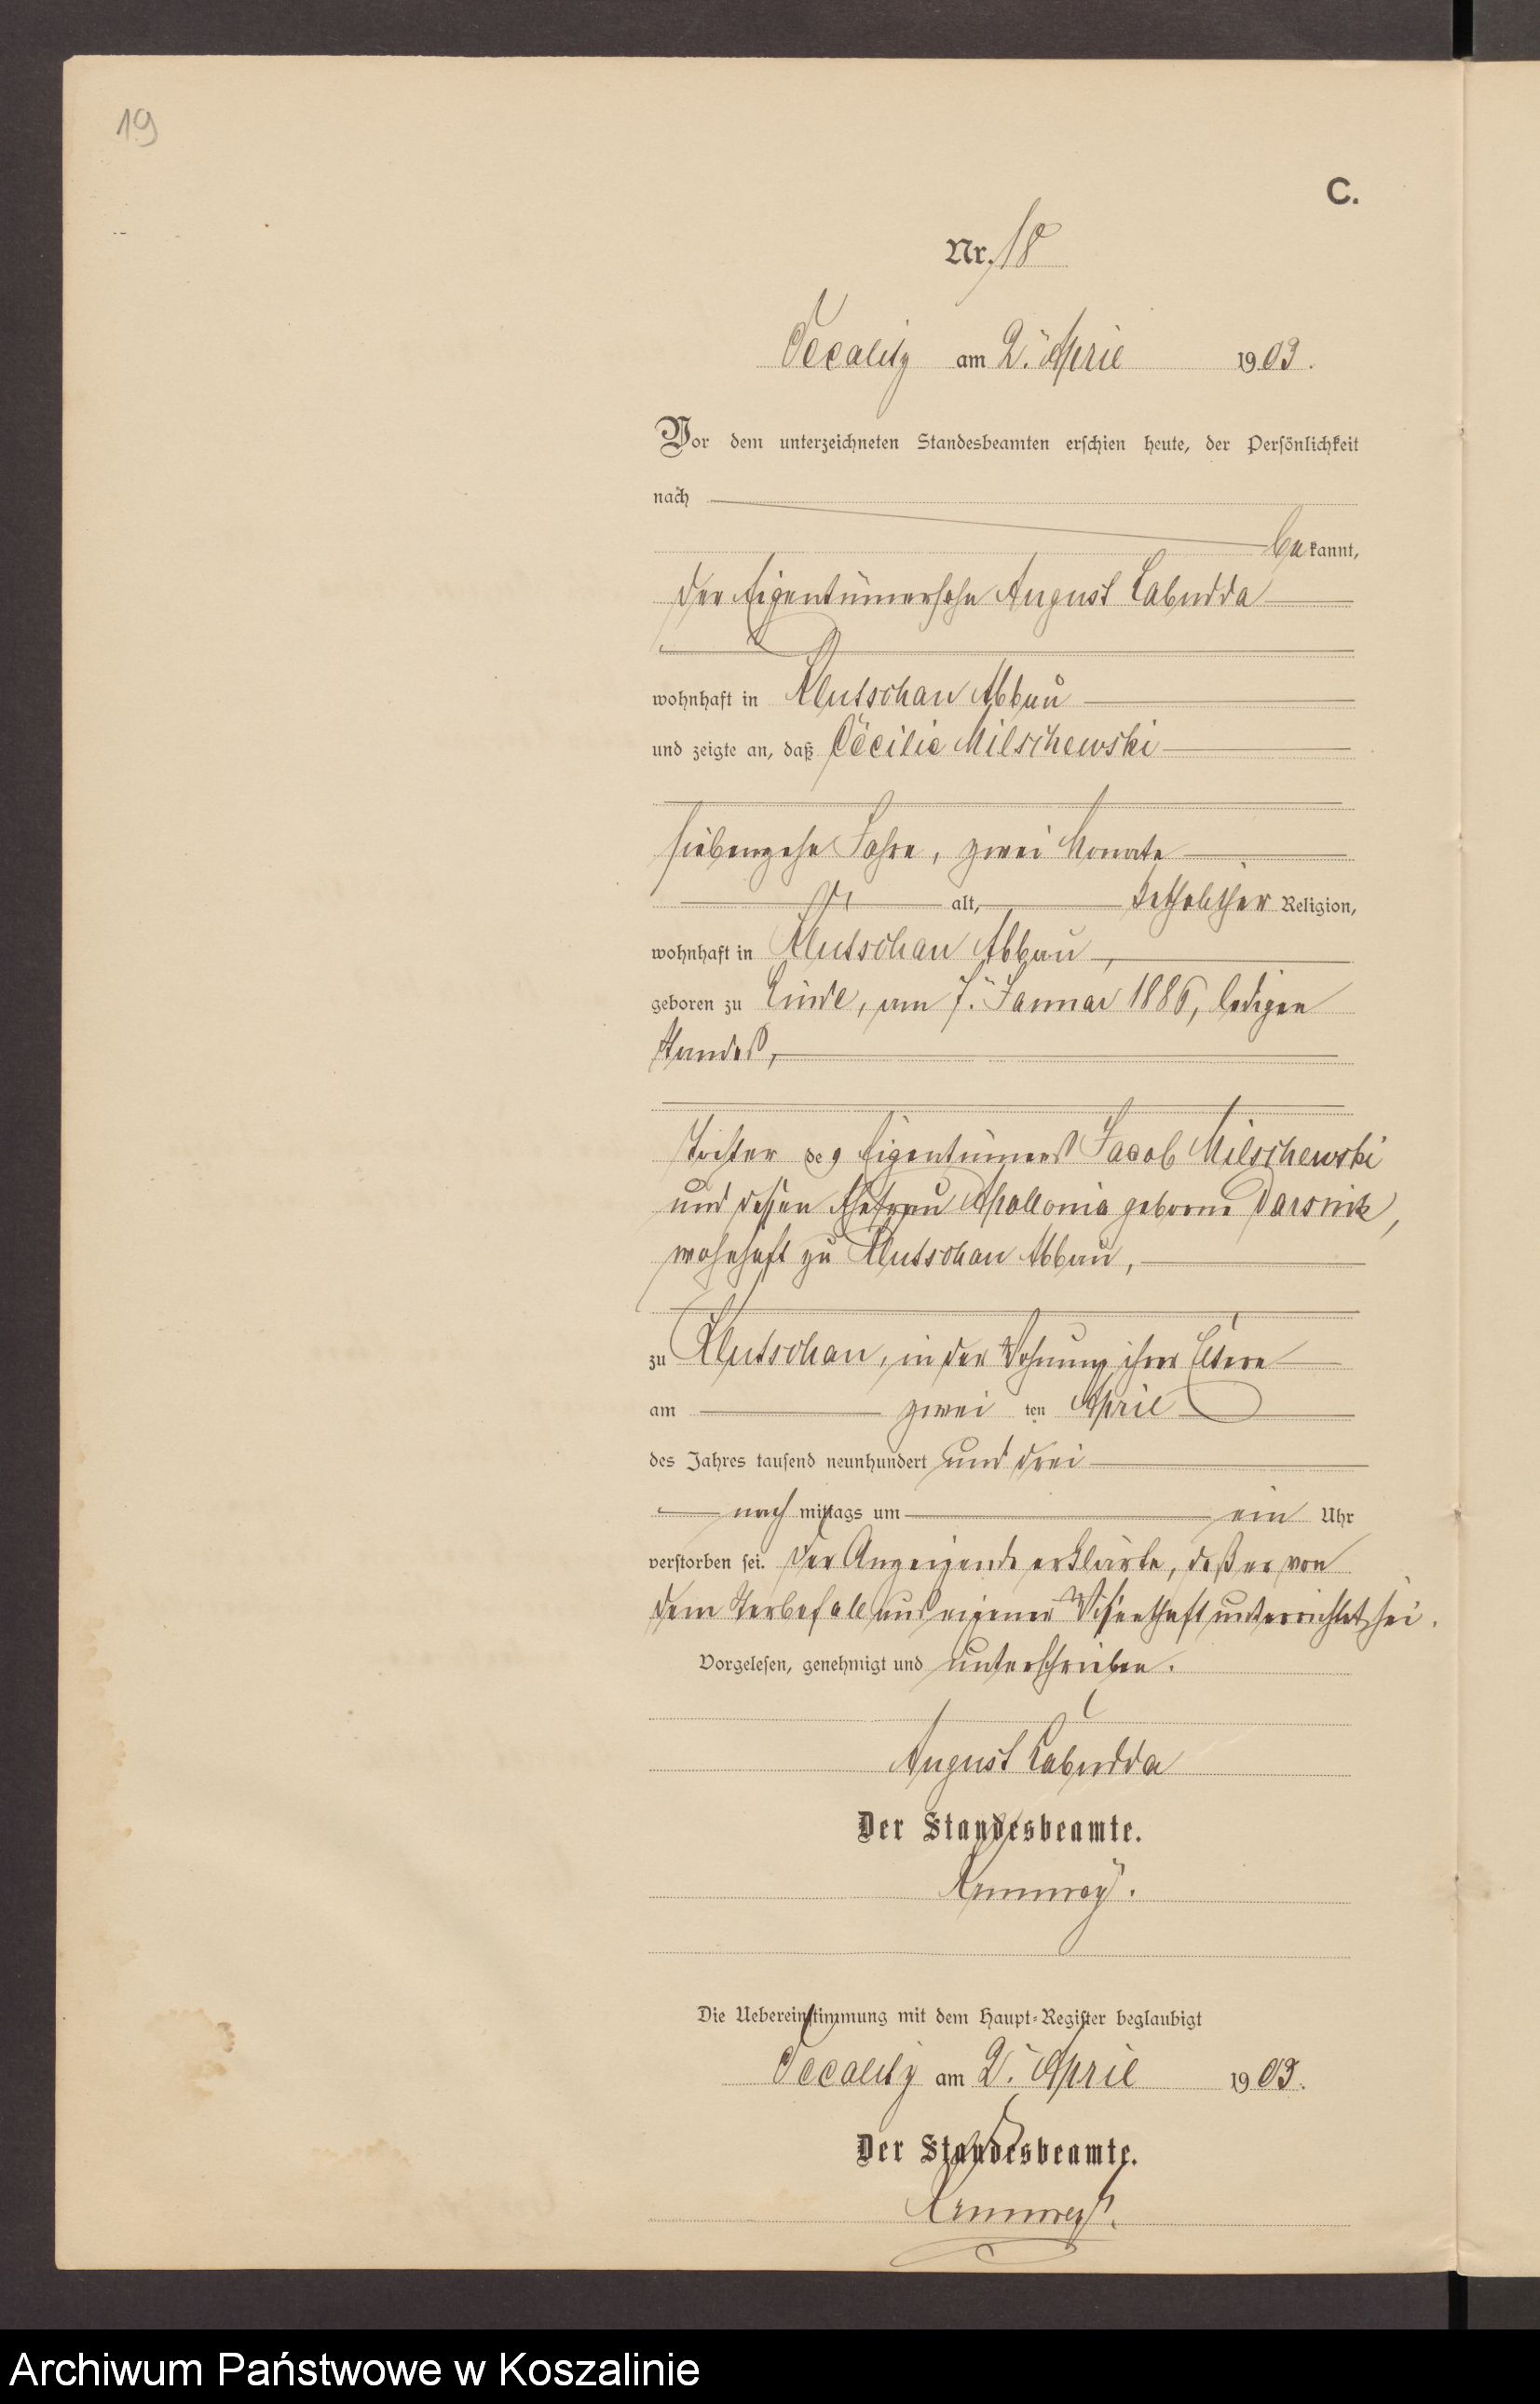 19
C.
Nr. 18
am 2. April 1903.
Vor dem unterzeichneten Standesbeamten erschien heute, der Persönlichkeit
nach
bekannt,
der Eigentümersohn August Labudda
wohnhaft in Klutschau Abbau
und zeigte an, daß Cäcilie Milschewski
siebenzehn Jahre, zwei Monate
alt, katholischer Religion,
wohnhaft in Klutschau Abbau,
geboren zu Linde, am 7. Januar 1886, ledigen
Standes,
Tochter des Eigentümers Jacob Milschewski
und dessen Ehefrau Apollonia geborne
wohnhaft zu Klutschau Abbau,
zu Klutschau, in der Wohnung ihrer Eltern
am zwei ten April
des Jahres tausend neunhundert und drei
nach mittags um ein Uhr
verstorben sei. Der Anzeigende erklärte, daß er von
dem Sterbefall aus eigener Wissenschaft unterrichtet sei.
Vorgelesen, genehmigt und unterschrieben.
August Labudda
Der Standesbeamte.
Die Uebereinstimmung mit dem Haupt-Register beglaubigt
am 2. April 1903.
Der Standesbeamte.
Archiwum Państwowe w Koszalinie